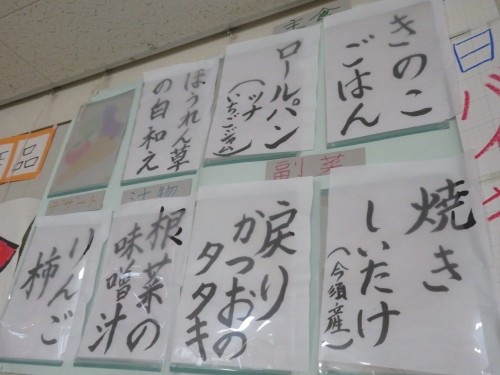 主食
きのこ
ごはん
ロールパン
(ツナ
いちごジャム)
ほうれん草
の白和え
副菜
焼き
しいたけ
(今須産)
戻り
かつおの
タタキ
汁物
根菜の
味噌汁
デザート
りんご
柿
品
日
バイ